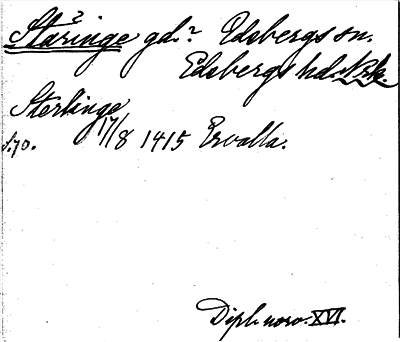 Staringe gd.? Edsbergs sn.
Edsbergs hd. Nrke
Sterlinge
s. 70. 17/8 1415 Ervalla.
Dipl. norv. XVI.